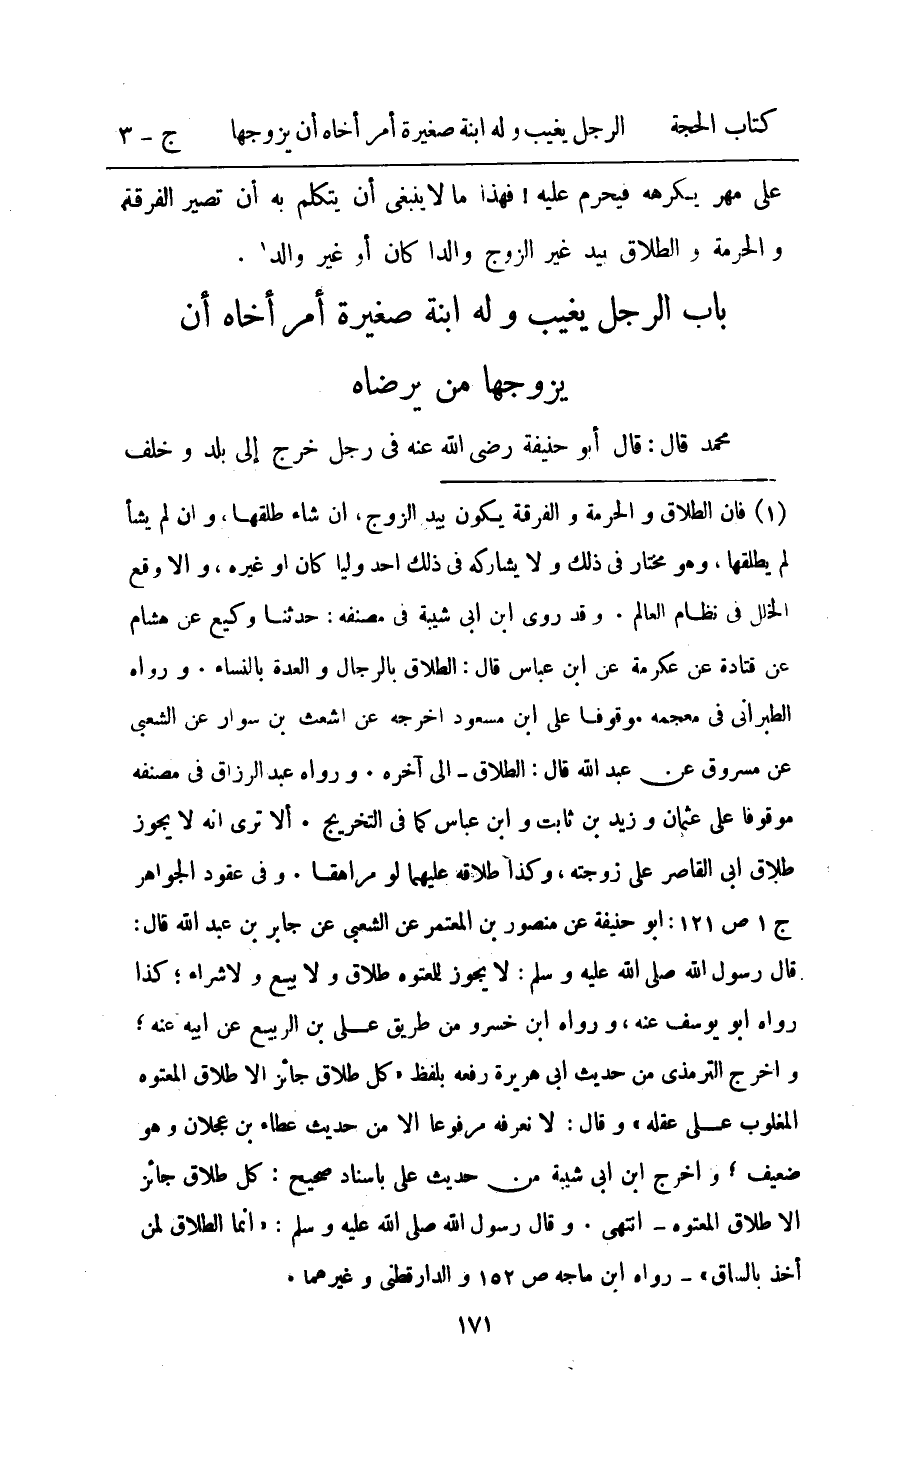 كتاب الحجة الرجل يغيب و له ابنة صغيرة أمر أخاه أن يزوجها ج - ٣
على مهر يكرهه فيحرم عليه ! فهذا ما لا ينبغى أن يتكلم به أن تصير الفرقة
و الحرمة و الطلاق بيد غير الزوج والدا كان أو غير والد١ .
باب الرجل يغيب و له ابنة صغيرة أمر أخاه أن
يزوجها من يرضاه
محمد قال : قال أبو حنيفة رضى الله عنه فى رجل خرج إلى بلد و خلف
(١) فان الطلاق و الحرمة و الفرقة يكون بيد الزوج ، ان شاء طلقها ، و ان لم يشأ
لم يطلقها ، وهو مختار فى ذلك و لا يشاركه فى ذلك احد وليا كان او غيره ، و الا وقع
الخلل فى نظام العالم . و قد روى ابن ابى شيبة فى مصنفه : حدثنا وكيع عن هشام
عن قتادة عن عكرمة عن ابن عباس قال : الطلاق بالرجال و العدة بالنساء . و رواه
الطبرانى فى معجمه موقوفا على ابن مسعود اخرجه عن اشعث بن سوار عن الشعبى
عن مسروق عن عبد الله قال : الطلاق - الى آخره . و رواه عبد الرزاق فى مصنفه
موقوفا على عثمان و زيد بن ثابت و ابن عباس كما فى التخريج . ألا ترى انه لا يجوز
طلاق ابى القاصر على زوجته ، وكذا طلاقه عليهما لو مراهقا . و فى عقود الجواهر
ج ١ ص ١٢١ : ابو حنيفة عن منصور بن المعتمر عن الشعبى عن جابر بن عبد الله قال :
قال رسول الله صلى الله عليه و سلم : لا يجوز للمعتوه طلاق و لا بيع و لا شراء ؛ كذا
رواه ابو يوسف عنه ، و رواه ابن خسرو من طريق على بن الربيع عن ابيه عنه ؛
و اخرج الترمذى من حديث ابى هريرة رفعه بلفظ «كل طلاق جائز الا طلاق المعتوه
المغلوب على عقله» و قال : لا نعرفه مرفوعا الا من حديث عطاء بن عجلان و هو
ضعيف ؛ و اخرج ابن ابى شيبة من حديث على باسناد صحيح : كل طلاق جائز
الا طلاق المعتوه - انتهى . و قال رسول الله صلى الله عليه و سلم : «انما الطلاق لمن
أخذ بالساق» - رواه ابن ماجه ص ١٥٢ و الدارقطنى و غيرهما .
١٧١